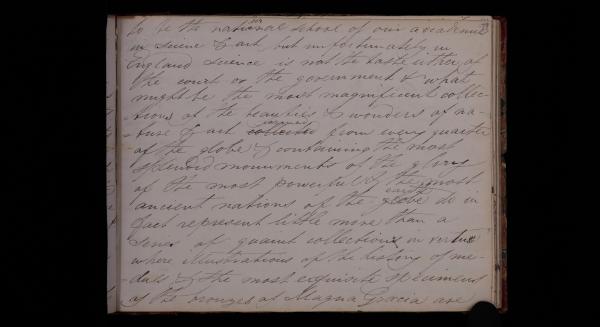 to be the national school of our academies
in science & art, but unfortunately in
England science is not the taste either of
the court or the government & what
might be the most magnificent collec-
-tions of the beauties & wonders of na-
-ture & art collected conveyed from every quarter
of the globe & containing the most
splendid monuments of the glory
of the most powerful & the most
ancient nations of the globe earth do in
fact represent little more than a
series of quaint collections in virtue
where illustrations of the history of me-
-dals & the most exquisite specimens
of the bronzes of Magna Grecia are